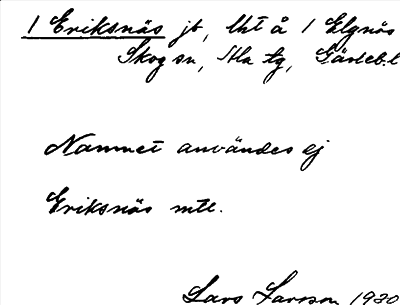 1 Eriksnäs jb, lht å 1 Elgnäs
Skog sn, Ala tg, Gävleb. l
Namnet användes ej
Eriksnäs mtl.
Lars Larsson 1930